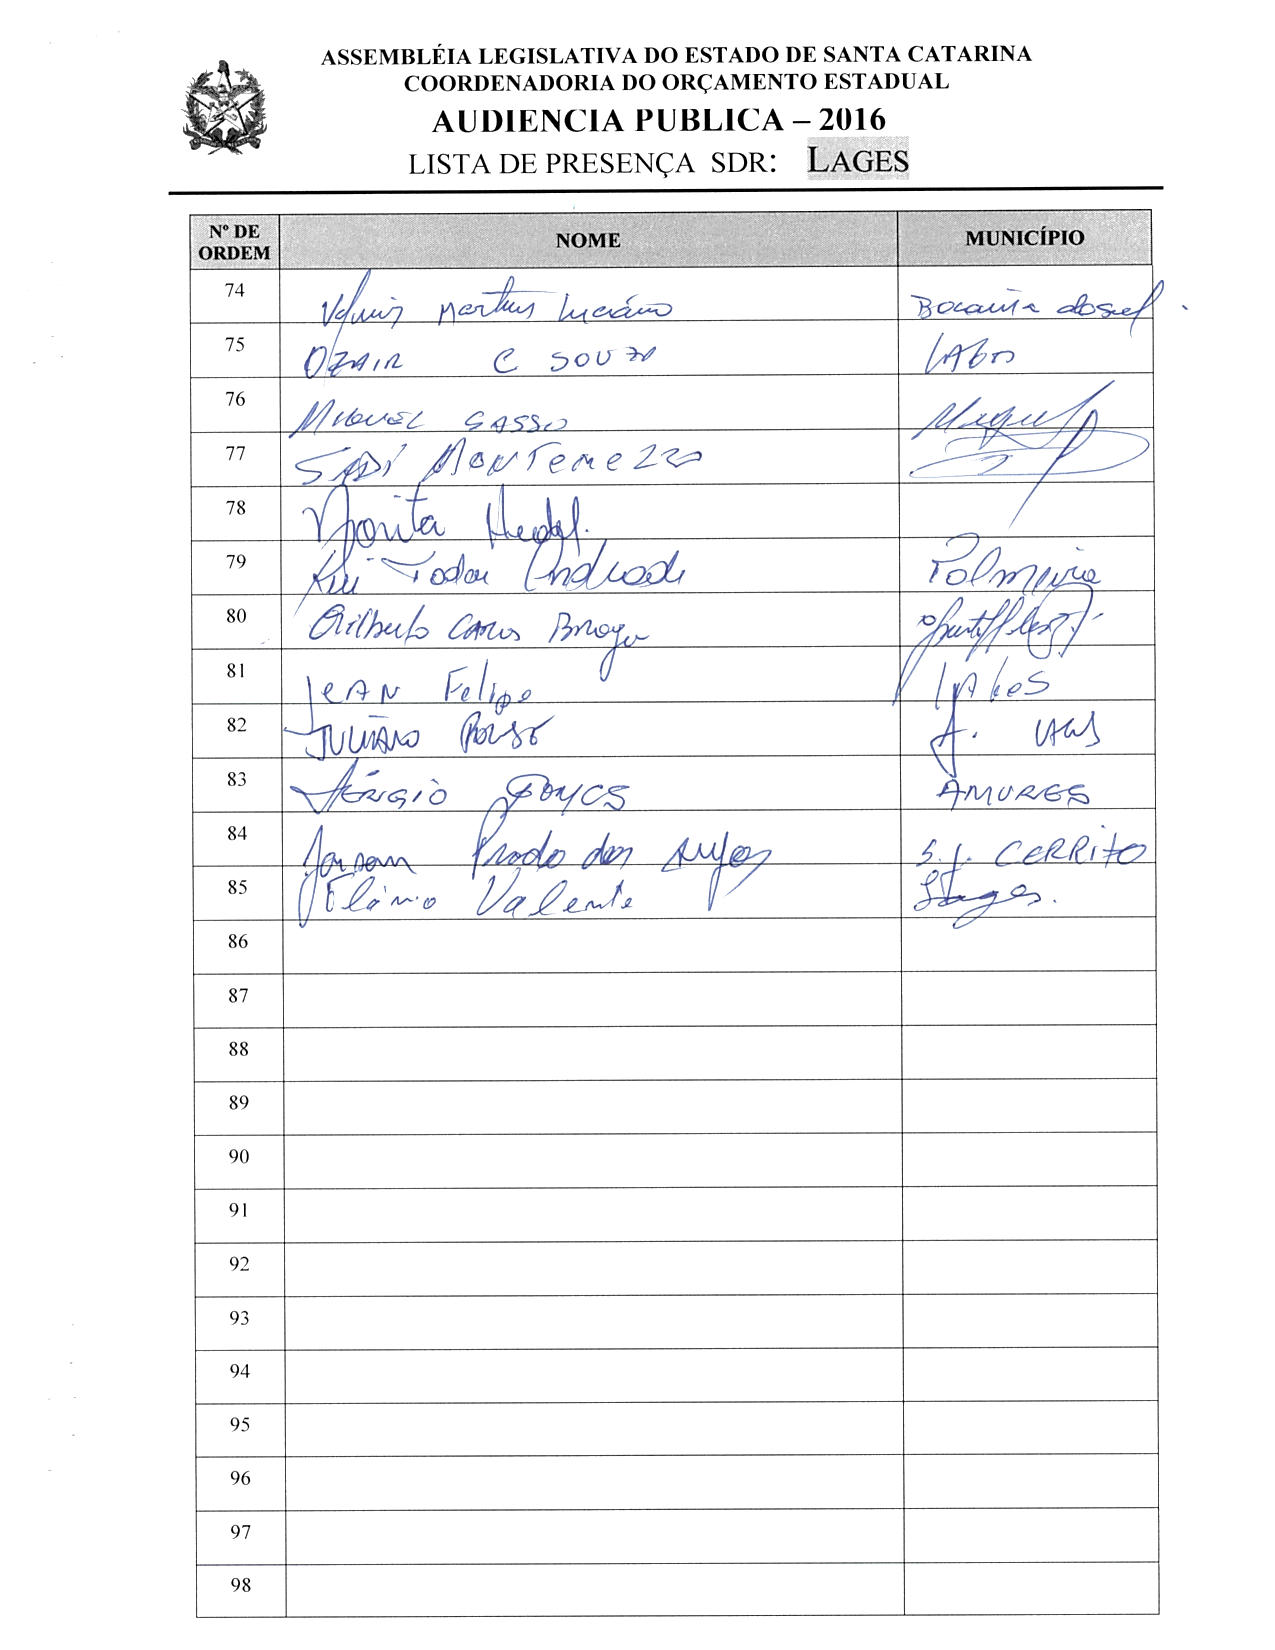 ASSEMBLÉIA LEGISLATIVA DO ESTADO DE SANTA CATARINA
COORDENADORIA DO ORÇAMENTO ESTADUAL
AUDIENCIA PUBLICA – 2016
LISTA DE PRESENÇA SDR: LAGES
Nº DE ORDEM NOME MUNICÍPIO
74 Martins Luciano Bocaina do Sul
75 OZAIR C SOUZA
76 MIGUEL GASSO
77 SADI MONTEMEZZO
78
79 Rui Andrade Palmeira
80 Gilberto Carlos Braga
81 JEAN Felipe
82 JULIANO
83 SÉRGIO AMURES
84 Prado dos Anjos S.J. CERRITO
85 Flávio Valente Lages.
86
87
88
89
90
91
92
93
94
95
96
97
98